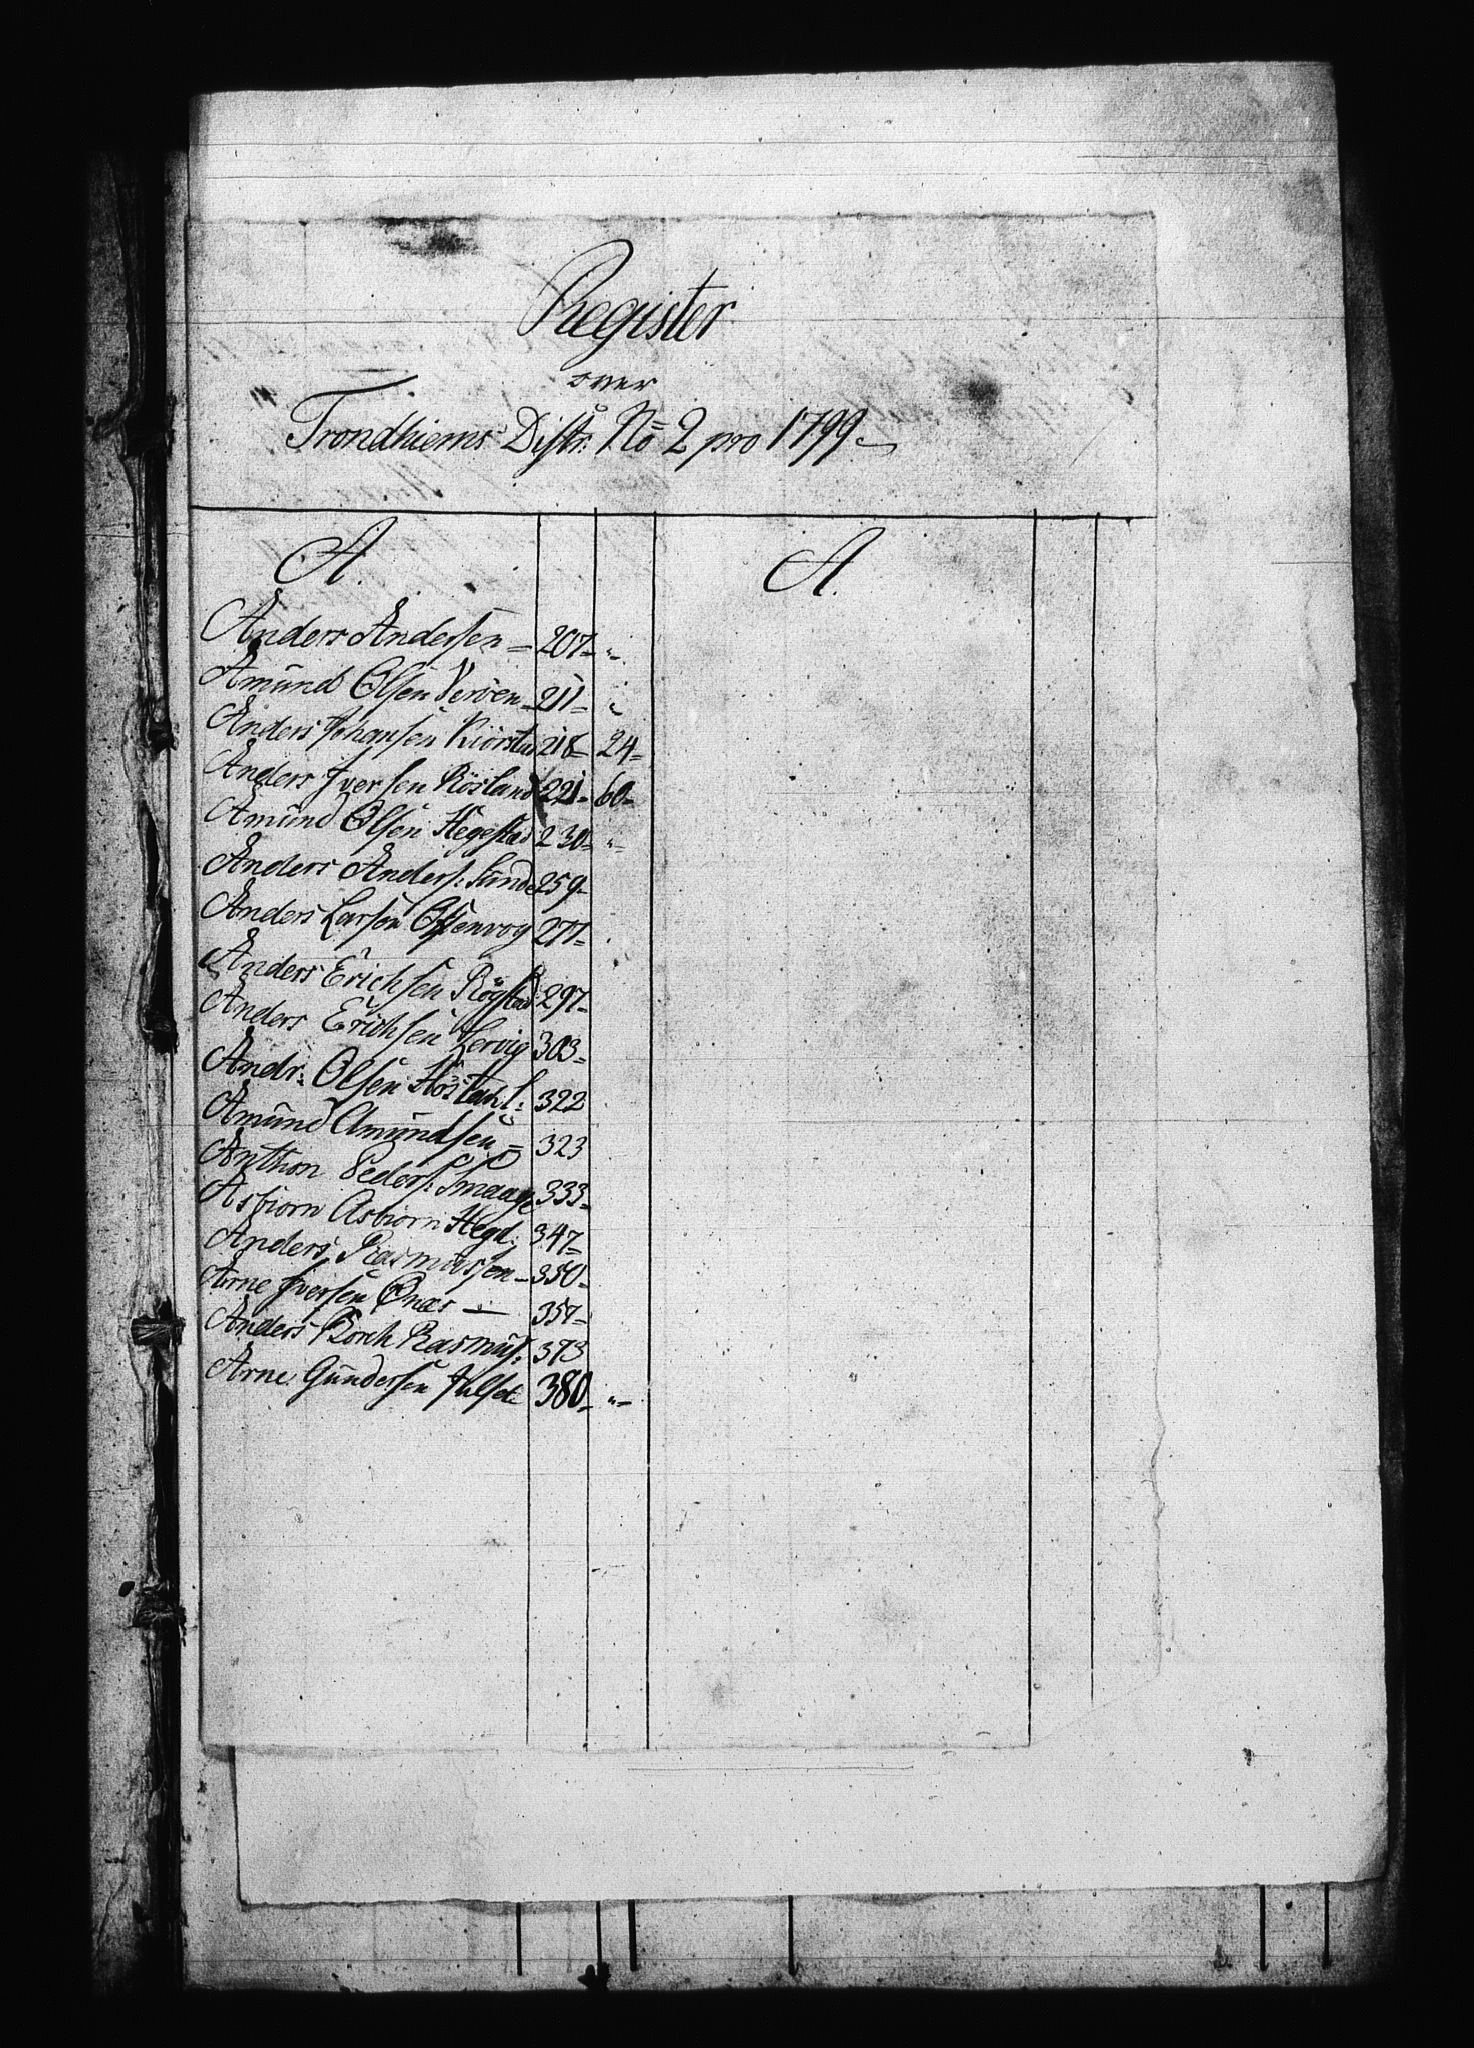 Register
over
Trondhiems Distr: No 2 pro 1799
A.
Anders Andersen = 207 - "-
Amund Olsen Verøen - 211 - "
Anders Johansen Kiørstad 218 - 24 -
Anders Iversen Røsland 221 - 60 -
Amund Olsen Hegestad 230 - "-
Anders Anders: Sunde 259 -
Anders Larsen 277 -
Anders Erichsen Røgstad 297 -
Anders Erichsen Hervig 303 -
Andr: Olsen 322
Amund Amundsen = 323
Anthon Peders: Smaage 333 -
Asbiorn Asbiorn Hegd: 347 -
Anders Rasmussen - 350 -
Arne Iversen Ønæs — 357 -
Anders Borch Rasmus: 373
Arne Gundersen Julset 380 - "-
A.